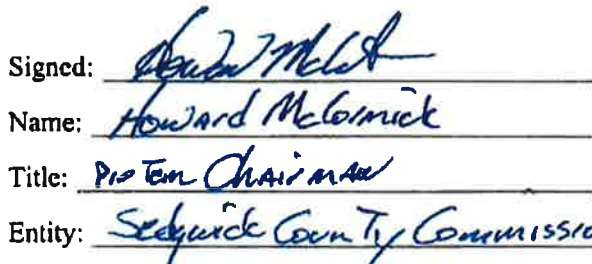 Signed: Howard McCormick
Name: Howard McCormick
Title: Pro Tem Chairman
Entity: Sedgwick County Commissio